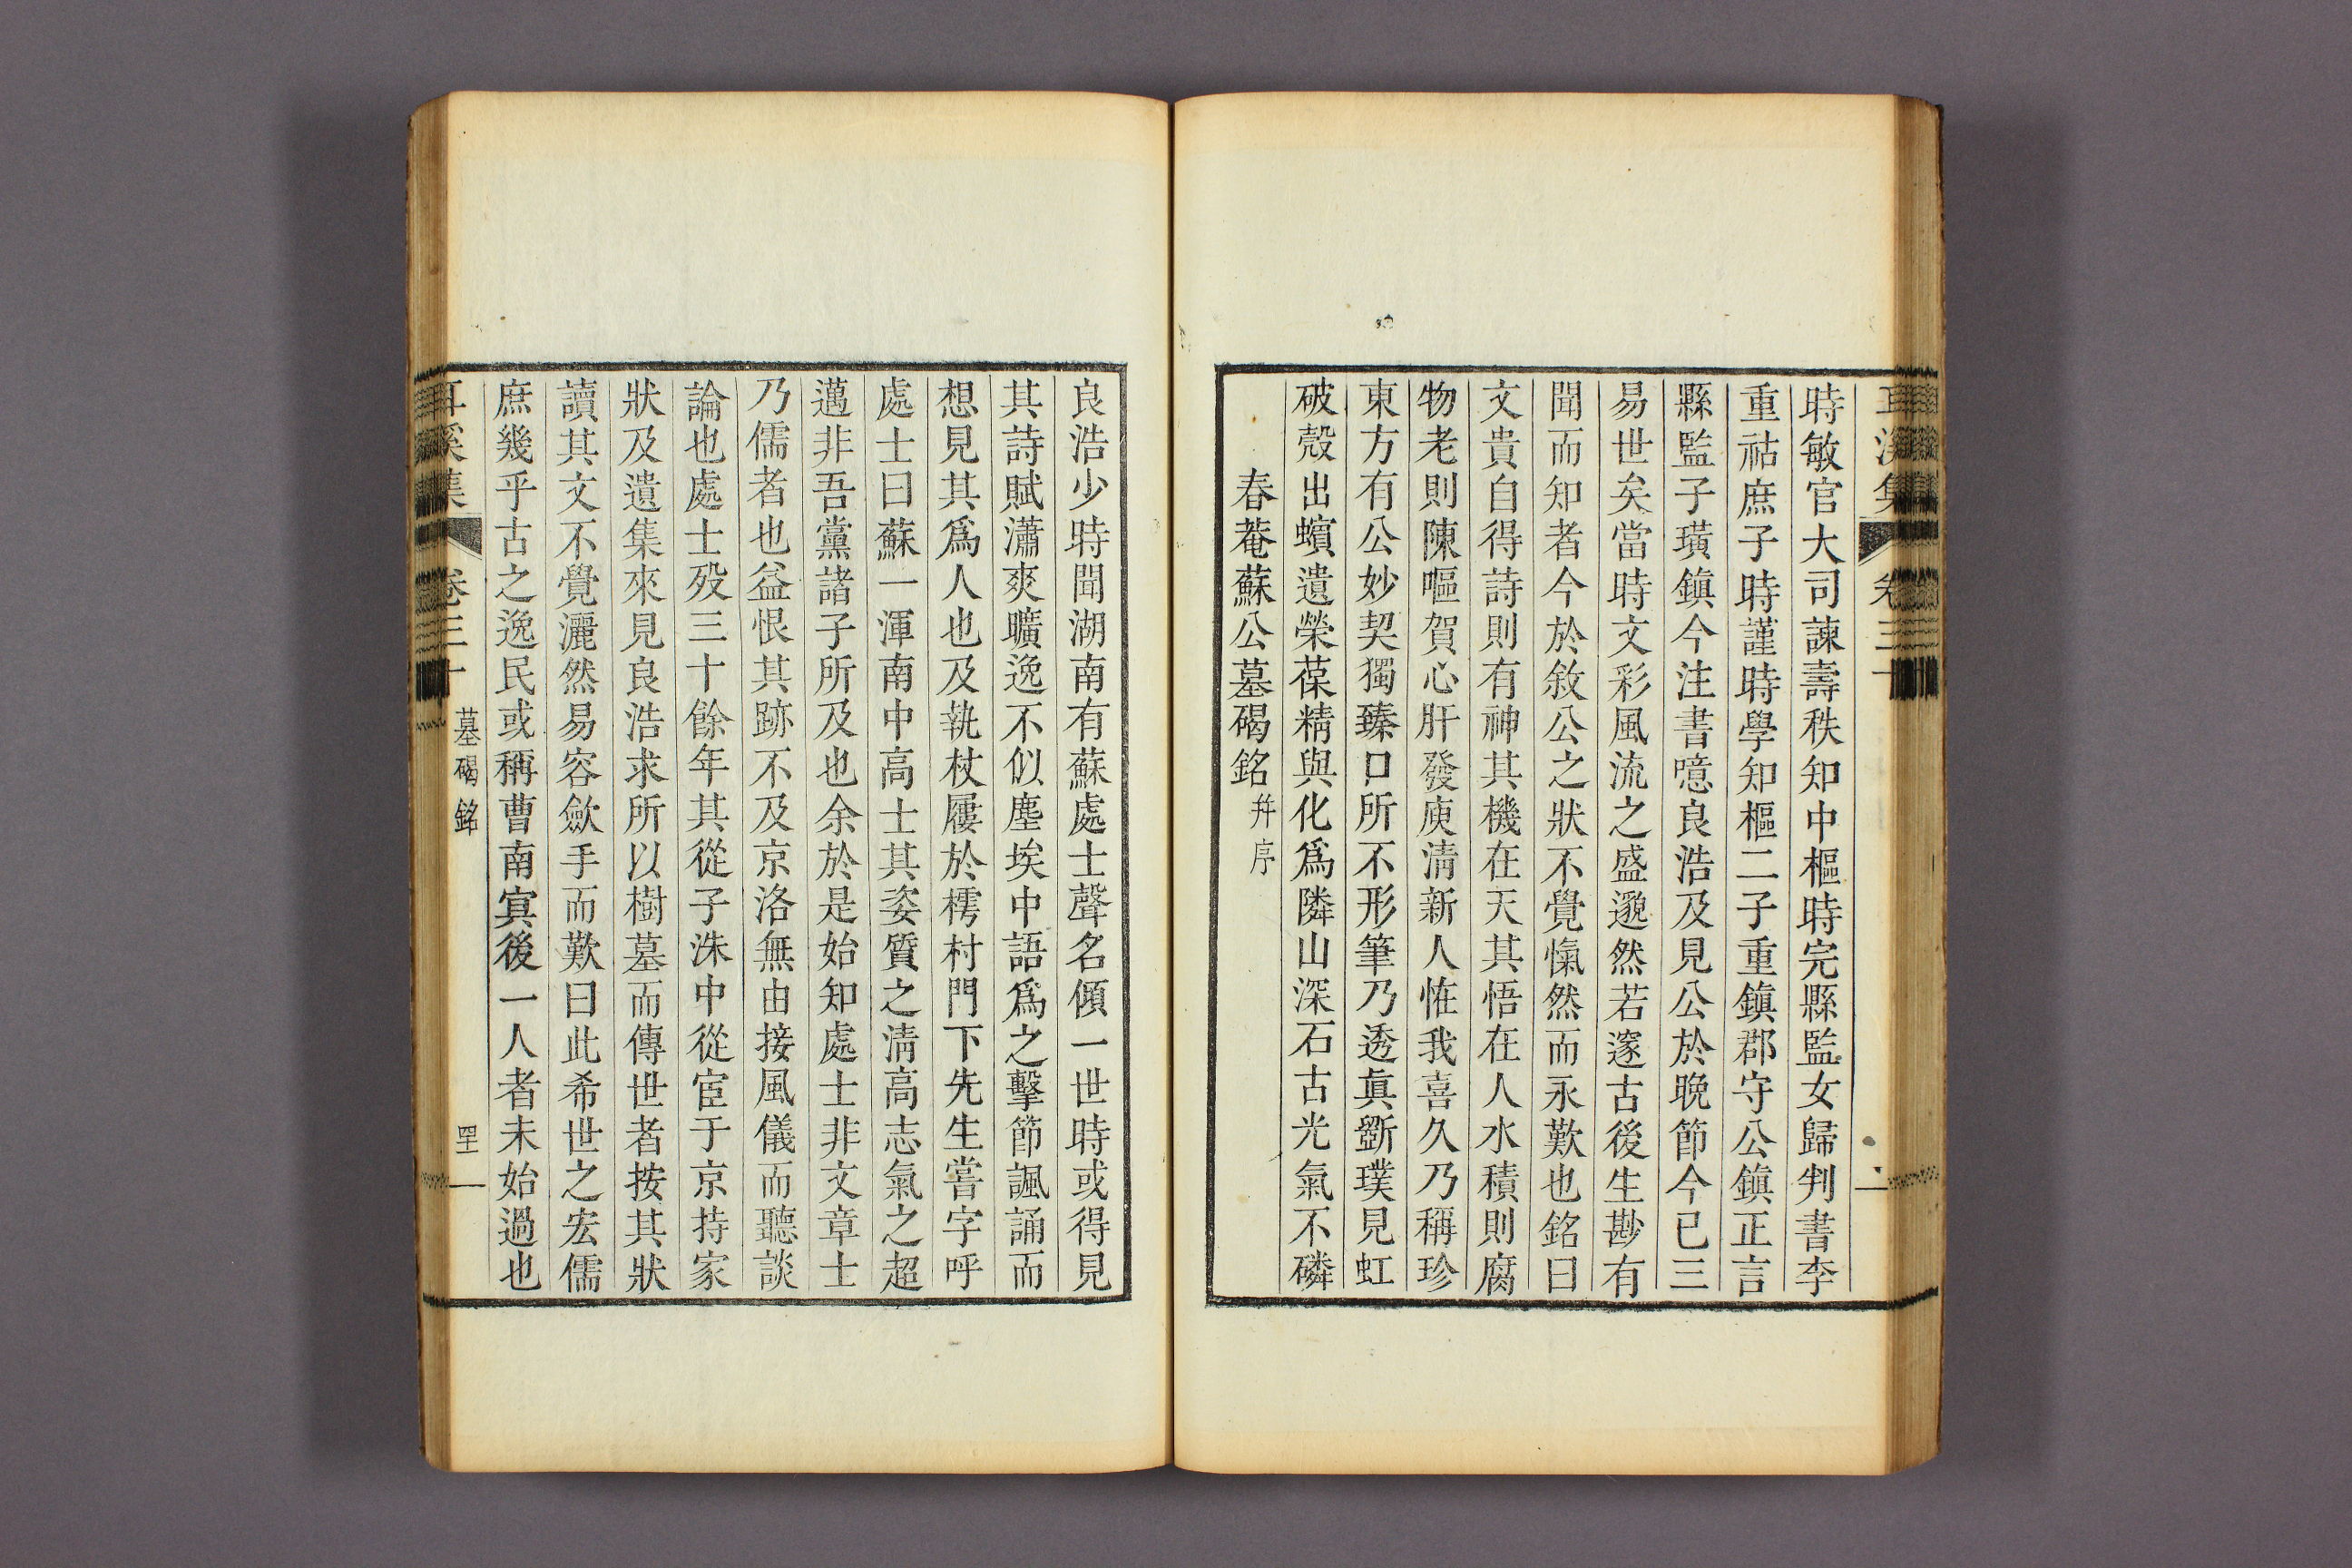 耳溪集 卷三十
時敏官大司諫壽秩知中樞時完縣監女歸判書李
重祜庶子時謹時學知樞二子重鎭郡守公鎭正言
縣監子璜鎭今注書噫良浩及見公於晩節今已三
易世矣當時文彩風流之盛邈然若邃古後生尠有
聞而知者今於敘公之狀不覺愾然而永歎也銘曰
文貴自得詩則有神其機在天其悟在人水積則腐
物老則陳嘔賀心肝發庾淸新人惟我喜久乃稱珍
東方有公妙契獨臻口所不形筆乃透眞斵璞見虹
破殼出蠙遺榮葆精與化爲隣山深石古光氣不磷
春菴蘇公墓碣銘幷序
良浩少時聞湖南有蘇處士聲名傾一世時或得見
其詩賦瀟爽曠逸不似塵埃中語爲之擊節諷誦而
想見其爲人也及執杖屨於樗村門下先生嘗字呼
處士曰蘇一渾南中高士其姿質之淸高志氣之超
邁非吾黨諸子所及也余於是始知處士非文章士
乃儒者也益恨其跡不及京洛無由接風儀而聽談
論也處士歿三十餘年其從子洙中從宦于京持家
狀及遺集來見良浩求所以樹墓而傳世者按其狀
讀其文不覺灑然易容歛手而歎曰此希世之宏儒
庶幾乎古之逸民或稱曹南㝠後一人者未始過也
耳溪集 卷三十 墓碣銘 四十一